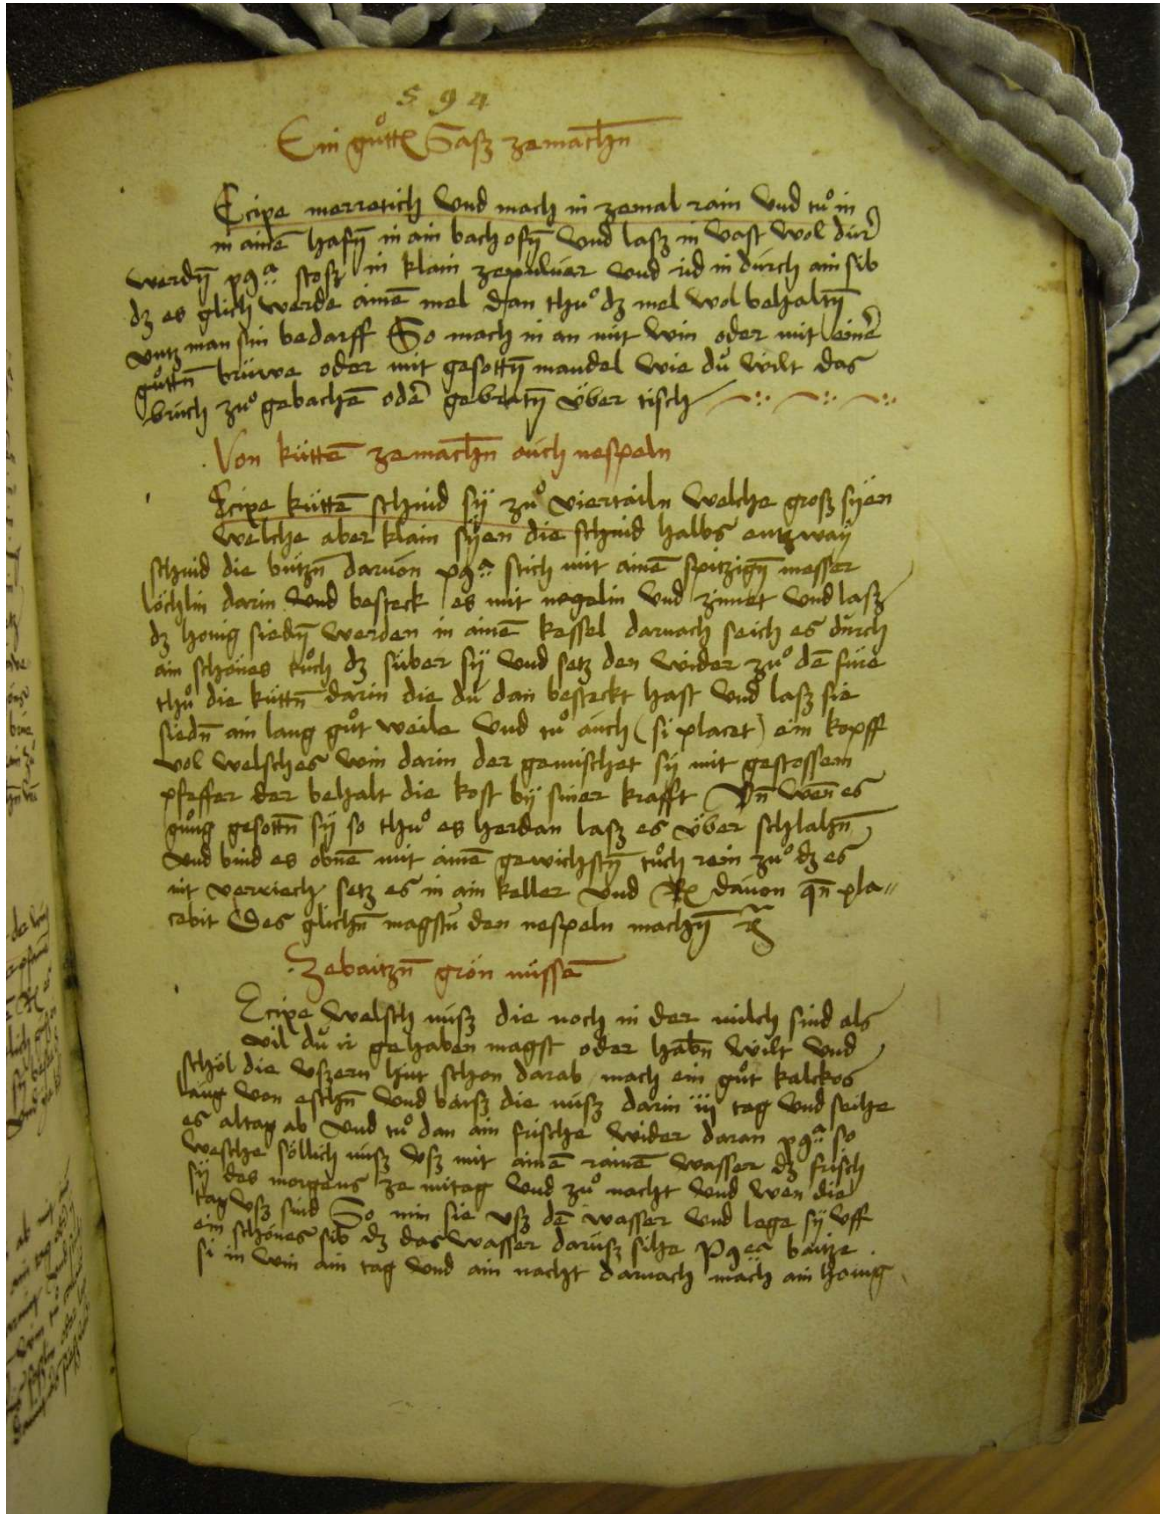 594
Ein gůtte Salsz zemachn̄
Ecipe merretich vnd mach in zemal rain vnd tů in
in ainē hafn̄ in ain bach ofn̄ vnd lasz in vast wol dür
werdn̄ stosz in klain zepuluer vnd in durch ain sib
dz es glich werde ainē mel dan thůͦ dz mel wol behaltn̄
vntz man sin bedarff So mach in an mit win oder mit einē
gůttn̄ brüwe oder mit gesottn̄ mandel wie du wilt das
bruch zů gebachē oder gebratn̄ über tisch
Von küttē zemachn̄ auch nespeln
Ecipe küttē schnid sÿ zů viertailn welche grosz sÿen
welche aber klain sÿen die schnid halbs entzwaÿ
schnid die butzn̄ daruon stich mit ainē spitzign̄ messer
löchlin darin vnd besteck es mit negelin vnd zinnet vnd lasz
dz honig siedn̄ werden in ainē kessel darnach seich es durch
ain schönes tůch dz suber sÿ vnd setz den wider zů dē füre
thů die küttn̄ darin die du dan besteckt hast vnd lasz sie
siedn̄ ain lang gůt weile vnd tů auch (si placet) ein kopff
vol welsches win darin der gemischet sÿ mit gestossem
pfeffer der behalt die kost bÿ siner krafft Vn̄ wen̄ es
gnůg gesottn̄ sÿ so thů es herdan lasz es über schlahn̄
vnd bind es obnē mit ainē gewichstn̄ tůch rein zů dz es
nit verriech setz es in ain keller vnd Rͤ dauon qn̄ pla-
cebit Des glichn̄ magstu den nespeln machn̄
Zebaitzn̄ grön nussē
Ecipe welsch nusz die noch in der milch sind als
vil du ir gehaben magst oder habn̄ wilt vnd
schöl die vszern hut schon darab mach ein gůt kalckos
laug von eschn̄ vnd baisz die nusz darin iij tag vnd seihe
es altag ab vnd tů dan ain frische wider daran so
wesche söllich nusz vsz mit ainē rainē wasser dz frisch
sÿ des morgens ze mitag vnd zů nacht vnd wen die
tag vsz sind So nim sie vsz dē wasser vnd lege sÿ vff
ein schönes sib dz das wasser darusz sihe baitze
si in win ain tag vnd ain nacht darnach mach ain honig